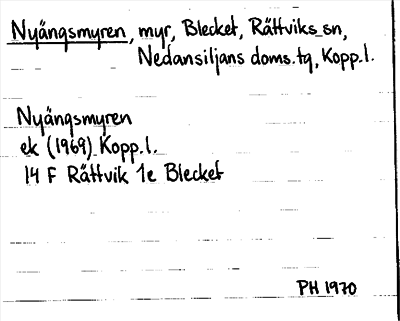 Nyängsmyren, myr, Blecket, Rättviks sn,
Nedansiljans doms.tg, Kopp.l.
Nyängsmyren
ek (1969) Kopp.l.
14 F Rättvik 1e Blecket
PH 1970